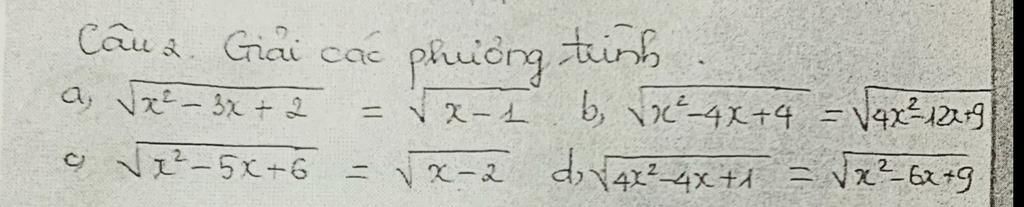 Câu 2. Giải các phương trình.
a, √(x² - 3x + 2) = √(x - 1) b, √(x² - 4x + 4) = √(4x² - 12x + 9)
c, √(x² - 5x + 6) = √(x - 2) d, √(4x² - 4x + 1) = √(x² - 6x + 9)